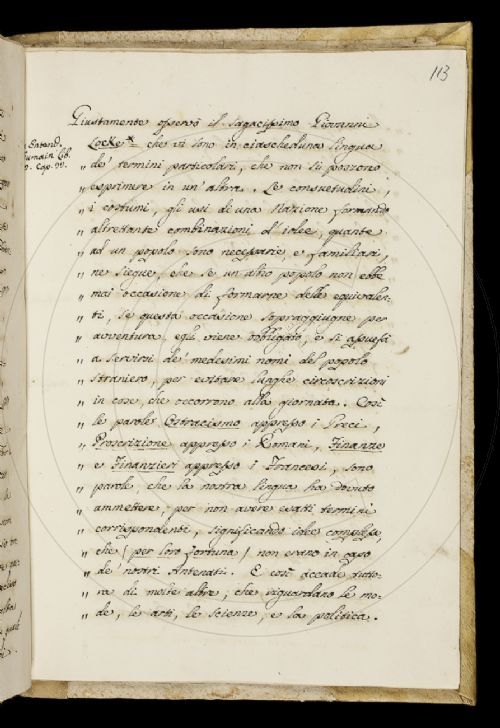 113
Giustamente osservò il sagacissimo Giovanni
Locke* = che vi sono in ciascheduna lingua
Entend.
humain Lib.
Cap.
„ de' termini particolari, che non si possono
„ esprimere in un' altra. Le consuetudini,
„ i costumi, gli usi di una Nazione formando
„ altrettante combinazioni d' idee, quante
„ ad un popolo sono necessarie, e familiari,
„ ne siegue, che se un altro popolo non ebbe
„ mai occasione di formarne delle equivalen-
„ ti, se questa occasione sopraggiugne per
„ avventura, egli viene obbligato, e si assuefà
„ a servirsi de' medesimi nomi del popolo
„ straniero, per evitare lunghe circoscrizioni
„ in cose che occorrono alla giornata. Così
„ le parole Ostracismo appresso i Greci,
„ Proscrizione appresso i Romani, Finanze
„ e Finanzieri appresso i Francesi, sono
„ parole, che la nostra lingua ha dovuto
„ ammettere, per non avere esatti termini
„ corrispondenti, significando idee complesse,
„ che (per loro fortuna) non erano in capo
„ de' nostri Antenati. E così accade tutto-
„ ra di molte altre, che riguardano le mo-
„ de, le arti, le scienze, e la politica.